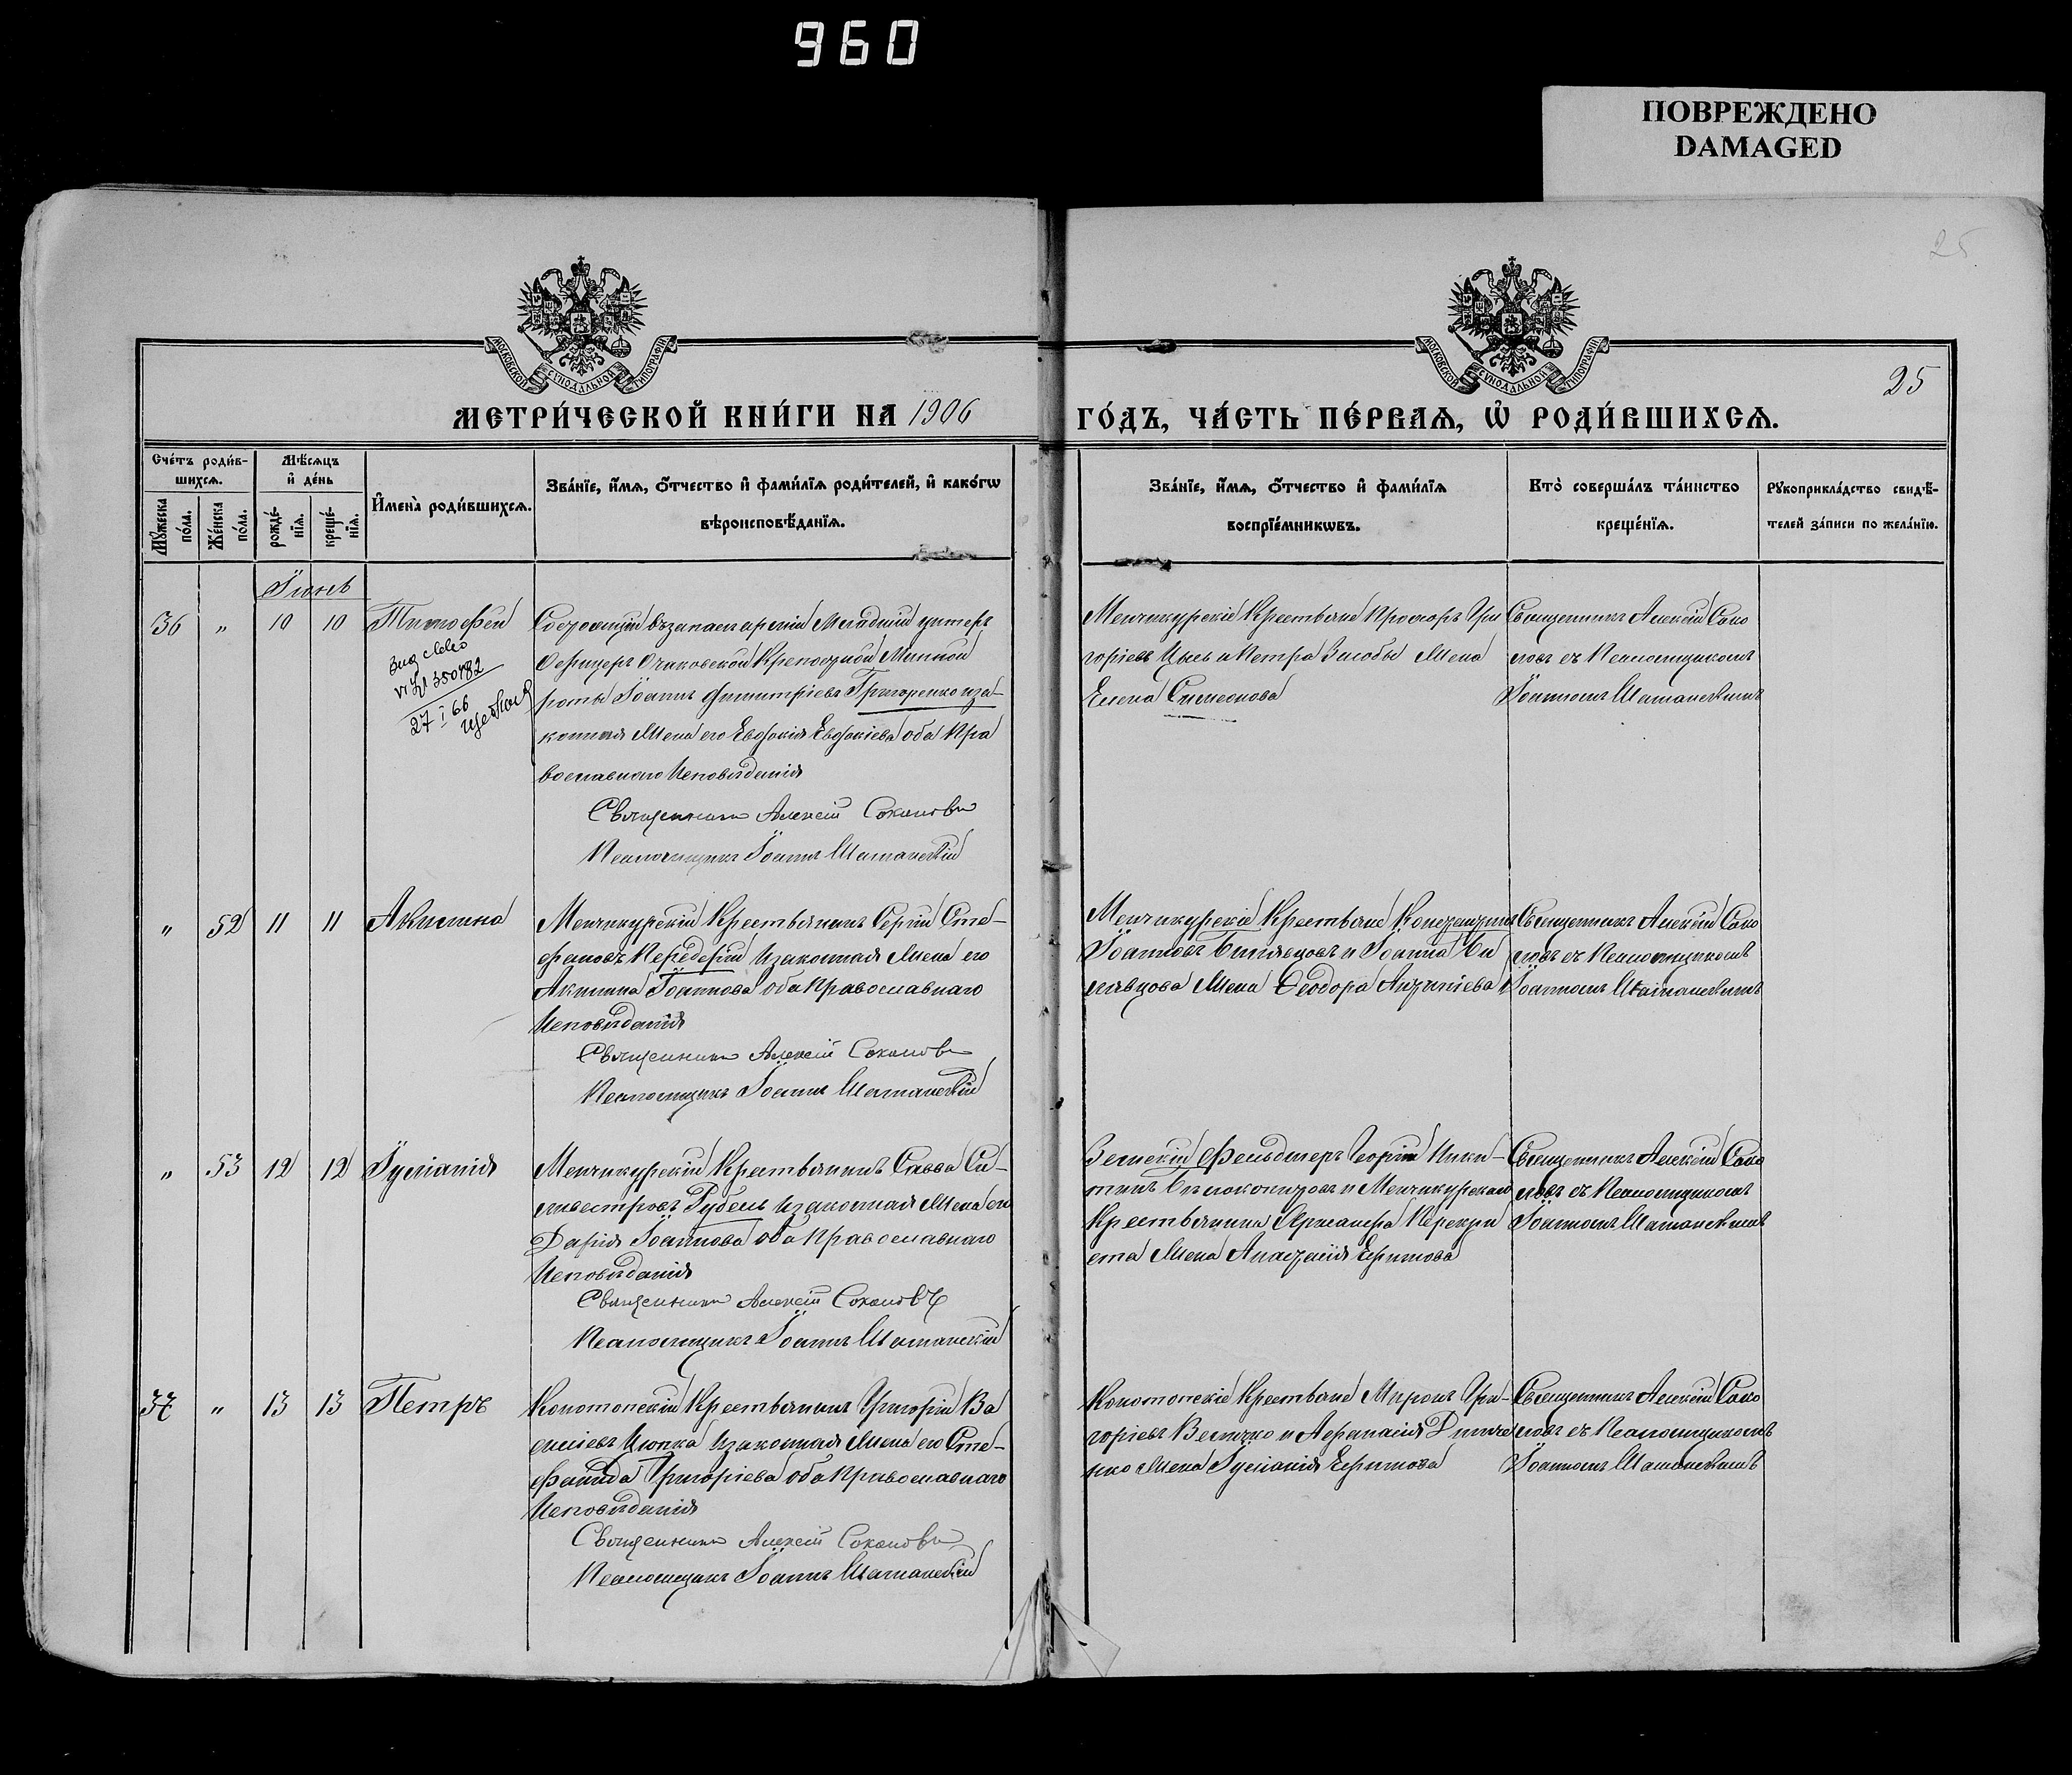 960
ПОВРЕЖДЕНО
DAMAGED
25
МОСКОВСКОЙ СУНОДАЛЬНОЙ ТИПОГРАФІИ
МОСКОВСКОЙ СУНОДАЛЬНОЙ ТИПОГРАФІИ
25
МЕТРИ́ЧЕСКОЙ КНИ́ГИ НА 1906
ГО́ДЪ, ЧА́СТЬ ПЕ́РВАѦ, Ѿ РОДИ́ВШИХСѦ.
Сче́тъ роди́в-
шихсѧ.
Мꙋжеска по́ла.
Же́нска по́ла.
Мѣ́сѧцъ
и҆ де́нь
рожде́-
нїѧ.
креще́-
нїѧ.
И҆мена̀ роди́вшихсѧ.
Зва́нїе, и҆́мѧ, ѻ҆́тчество и҆ фами́лїѧ роди́телей, и҆ како́гѡ
вѣроисповѣ́данїѧ.
Зва́нїе, и҆́мѧ, ѻ҆́тчество и҆ фами́лїѧ
воспрїе́мникѡвъ.
Кто̀ соверша́лъ та́инство
креще́нїѧ.
Рꙋкоприкла́дство свидѣ́-
телей за́писи по жела́нїю.
Іюнь
36 " 10 10 Тимофей
Состоящій въ запасе арміи Младшій унтеръ
Офицеръ Очаковской Крепостной Минной
роты Іоаннъ Димитріевъ Григоренко и за-
конная Жена его Евдокія Евдокіева оба Пра
вославнаго Исповѣданія
Священникъ Алексій Соколовъ
Псаломщикъ Іоаннъ
350182
27 I 66
Менчикурскіе Крестьяне Прохоръ Гри
горіевъ Цысь и Петра Жена
Елена Симеонова
Священникъ Алексій Соко
ловъ съ Псаломщикомъ
Іоанномъ
" 52 11 11 Акилина
Менчикурскій Крестьянинъ Сергій Сте-
фановъ Передерій и законная Жена его
Акилина Іоаннова оба Православнаго
Исповѣданія
Священникъ Алексій Соколовъ
Псаломщикъ Іоаннъ
Менчикурскіе Крестьяне
Іоанновъ и Іоанна Би
лявцова Жена Ѳеодора
Священникъ Алексій Соко
ловъ съ Псаломщикомъ
Іоанномъ
" 53 12 12 Іуліанія
Менчикурскій Крестьянинъ Савва Си-
львестровъ Рубель и законная Жена его
Дарія Іоаннова оба Православнаго
Исповѣданія
Священникъ Алексій Соколовъ
Псаломщикъ Іоаннъ
Земскій Фельдшеръ Георгій Ники-
тинъ и Менчикурскаго
Крестьянина Перекри
ста Жена Анастасія Ефимова
Священникъ Алексій Соко
ловъ съ Псаломщикомъ
Іоанномъ
37 " 13 13 Петръ
Конотопскій Крестьянинъ Григорій Ва
силіевъ Цюпка и законная Жена его Сте-
фанида Григоріева оба Православнаго
Исповѣданія
Священникъ Алексій Соколовъ
Псаломщикъ Іоаннъ
Конотопскіе Крестьяне Миронъ Гри-
горіевъ Величко и Афанасія
нко Жена Іуліанія Ефимова
Священникъ Алексій Соко
ловъ съ Псаломщикомъ
Іоанномъ